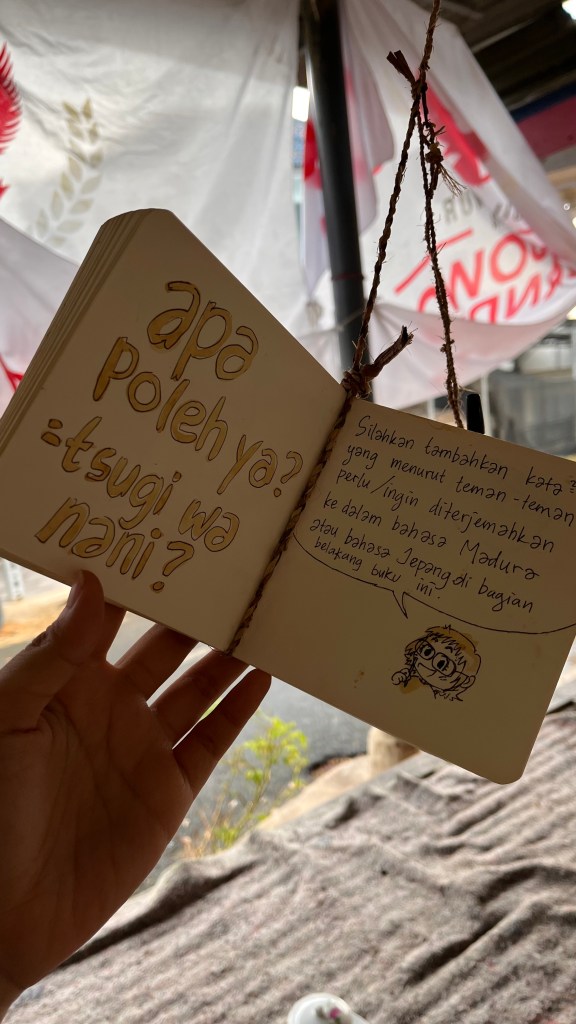 apa
poleh ya?
=tsugi wa
nani?
Silahkan tambahkan kata²
yang menurut teman-teman
perlu/ingin diterjemahkan
ke dalam bahasa Madura
atau bahasa Jepang di bagian
belakang buku ini.